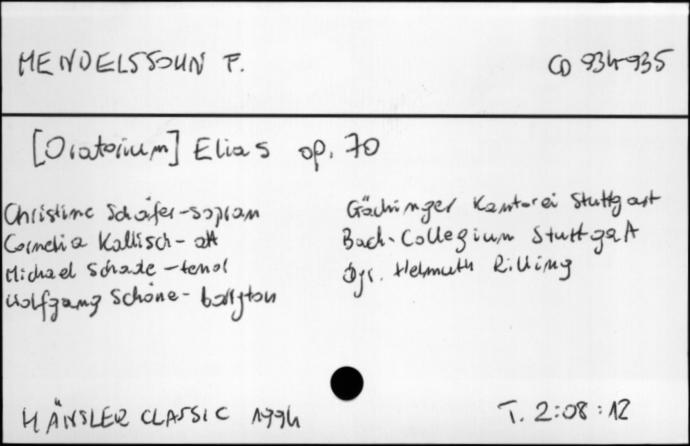 MENDELSSOHN F. CD 934-935
[Oratorium] Elias op. 70
Christine Schäfer - sopran
Cornelia Kallisch - alt
Michael Schade - tenor
Wolfgang Schöne - baryton
Gächinger Kantorei Stuttgart
Bach-Collegium Stuttgart
Dyr. Helmuth Rilling
HÄNSLER CLASSIC 1994 T. 2:08:12